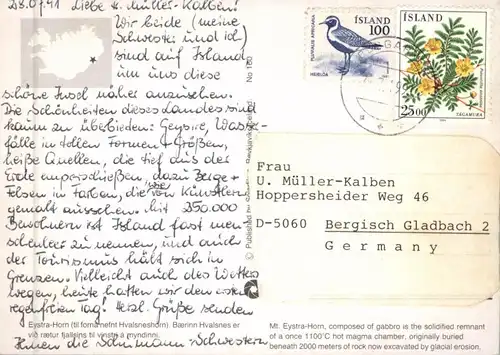 28.07.91 Liebe Fr. Müller-Kalben!
Wir beide (meine
Schwester und ich)
sind auf Island
um uns diese
schöne Insel näher anzusehen.
Die Schönheiten dieses Landes sind
kaum zu überbieten: Geysire, Wasser-
fälle in tollen Formen + Größen,
heiße Quellen, die tief aus der
Erde emporschießen, dazu Berge +
Felsen in Farben, die wie von Künstlern
gemalt aussehen. Mit 250.000
Bewohnern ist Island fast men-
schenleer zu nennen, und auch
der Tourismus hält sich in
Grenzen. Vielleicht auch des Wetters
wegen, heute hatten wir den ersten
regenfreien Tag! Herzl. Grüße senden
Ihnen die Schumann Schwestern
Eystra-Horn (til forna nefnt Hvalsneshorn). Bærinn Hvalsnes er
við rætur fjallsins til vinstri á myndinni.
No 160
© Published
PLUVIALIS APRICARIA
HEIÐLÓA
ÍSLAND
100
ÍSLAND
2500
TÁGAMURA
Frau
U. Müller-Kalben
Hoppersheider Weg 46
D-5060 Bergisch Gladbach 2
Germany
Mt. Eystra-Horn, composed of gabbro is the solidified remnant
of a once 1100°C hot magma chamber, originally buried
beneath 2000 meters of rock now excavated by glacial erosion.